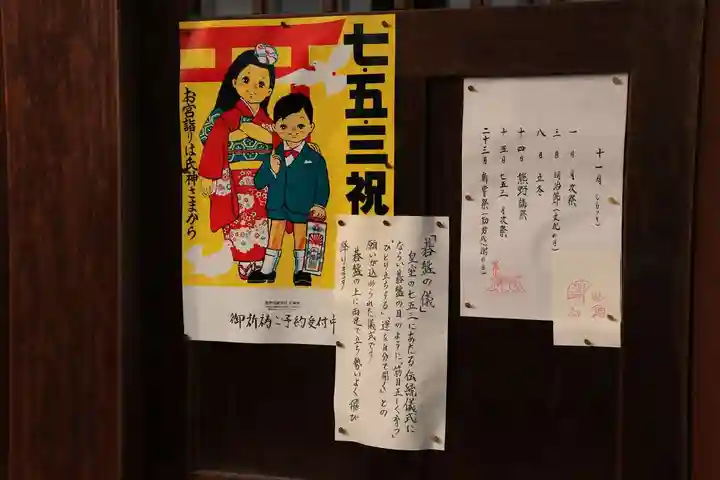 七・五・三祝
お宮詣りは氏神さまから
御祈祷ご予約受付中
「碁盤の儀」
皇室の七五三にあたる伝統儀式に
ならい碁盤の目のように、"筋目正しく育つ"
"ひとり立ちする" "運を自分で開く" との
願いが込められた儀式です
碁盤の上に両足で立ち勢いよく飛び
降ります
十一月
一日 月次祭
三日 明治節(文化の日)
八日 立冬
十四日 熊野講祭
十五日 七五三 月次祭
二十三日 新嘗祭(勤労感謝の日)